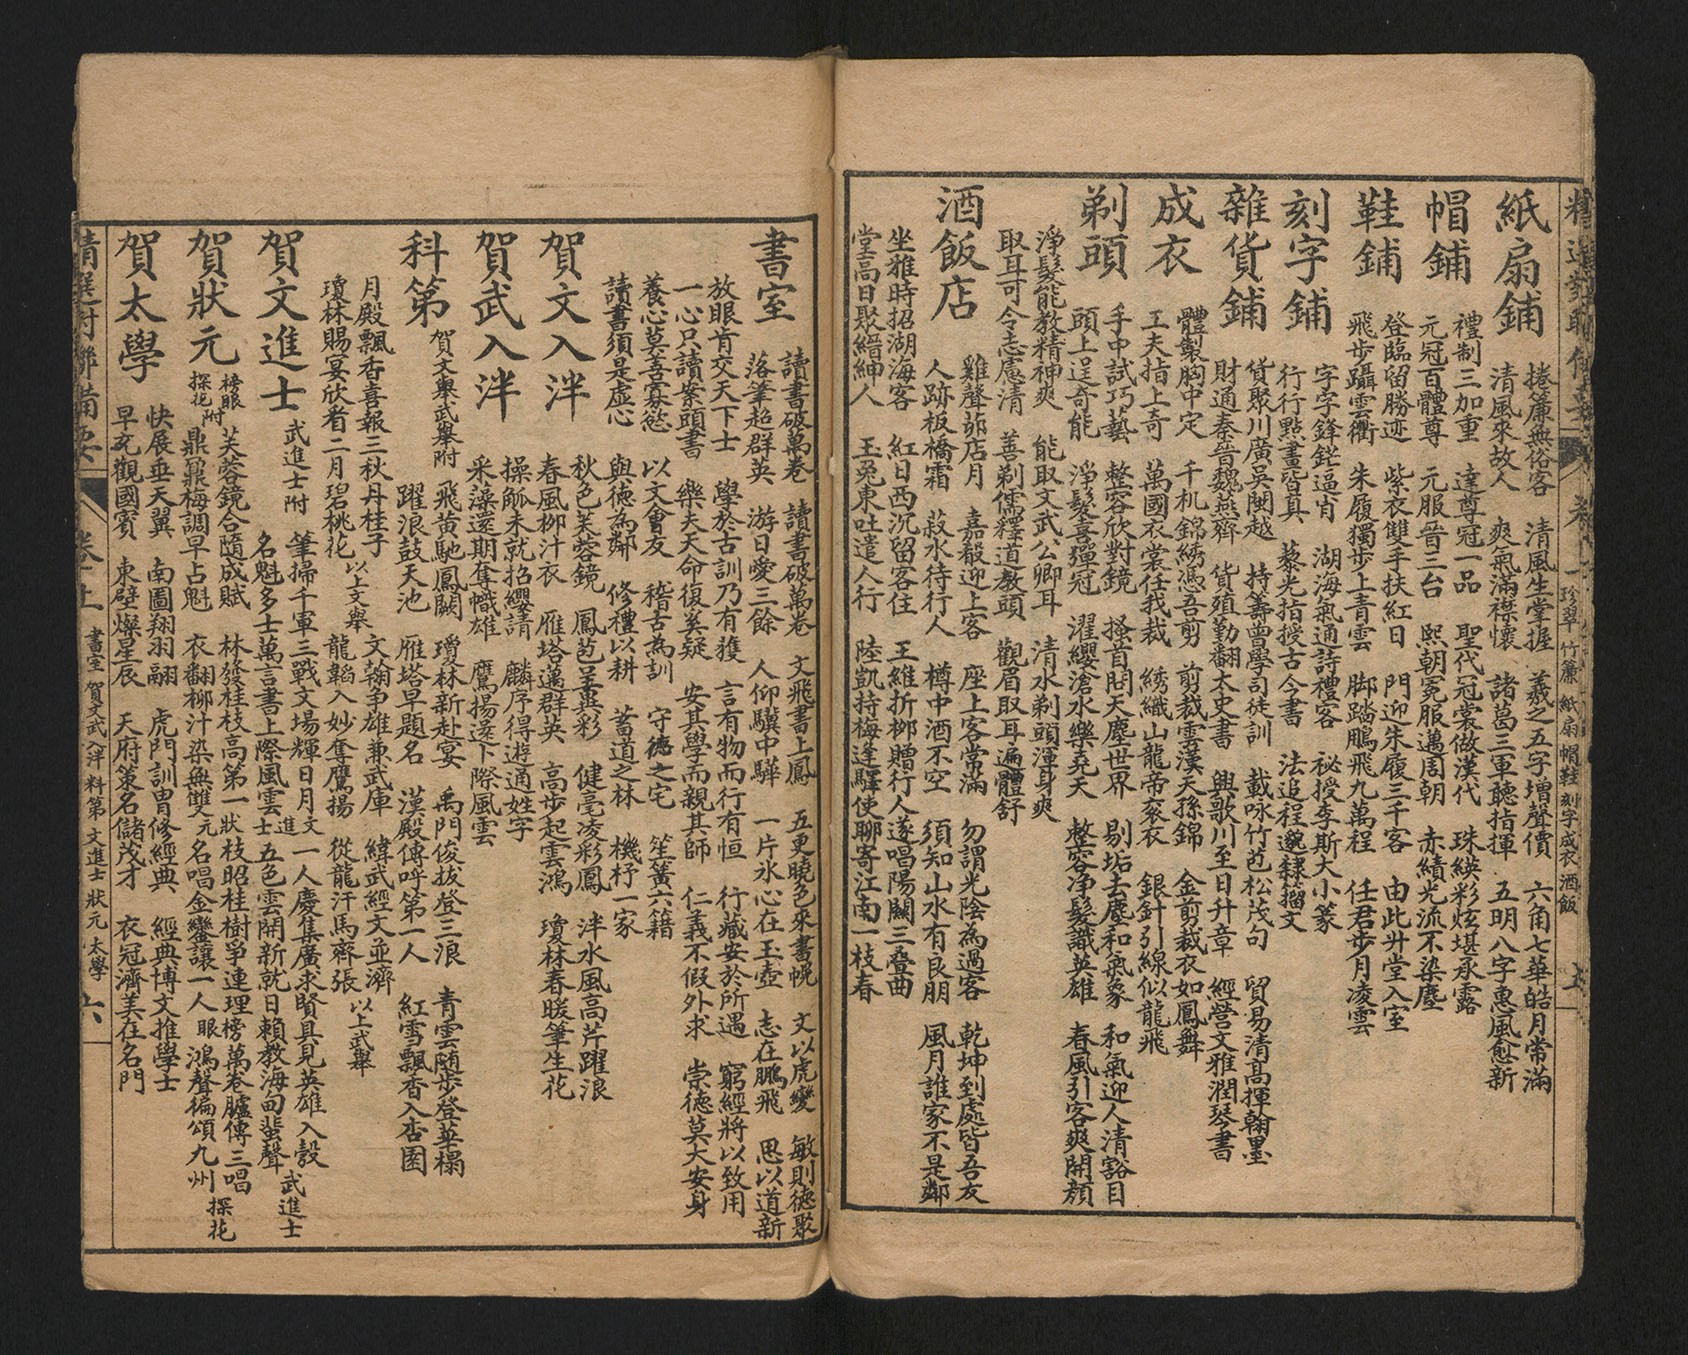 紙扇鋪
捲簾無俗客　清風生掌握　羲之五字增聲價　六角七華皓月常滿
清風來故人　爽氣滿襟懷　諸葛三軍聽指揮　五明八字惠風愈新
帽鋪
禮制三加重　達尊冠一品　聖代冠裳做漢代　珠緓彩炫堪承露
元冠百體尊　元服晉三台　熙朝冕服邁周朝　赤績光流不染塵
鞋鋪
登臨留勝迹　紫衣雙手扶紅日　門迎朱履三千客　由此升堂入室
飛步躡雲衢　朱履獨步上青雲　脚踏鵬飛九萬程　任君步月凌雲
刻字鋪
字字鋒鋩逼肖　湖海氣通詩禮客　秘授李斯大小篆
行行點畫皆真　藜光指授古今書　法追程邈隸籀文
雜貨鋪
貨聚川廣吳閩越　持籌曾學司徒訓　載咏竹苞松茂句　貿易清高揮翰墨
財通秦晉魏燕齊　貨殖勤翻太史書　興歌川至日升章　經營文雅潤琴書
成衣
體製胸中定　千机錦綉憑吾剪　剪裁雲漢天孫錦　金剪裁衣如鳳舞
工夫指上奇　萬國衣裳任我裁　綉織山龍帝衮衣　銀針引線似龍飛
剃頭
手中試巧藝　整容欣對鏡　搔首問天塵世界　剔垢去塵和氣象　和氣迎人清豁目
頭上逞奇能　淨髮喜彈冠　濯纓滄水樂堯天　整容净髮識英雄　春風引客爽開顏
淨髮能教精神爽　能取文武公卿耳　清水剃頭渾身爽
取耳可令志慮清　善剃儒釋道教頭　觀眉取耳遍體舒
酒飯店
雞聲茆店月　嘉殽迎上客　座上客常滿　勿謂光陰為過客　乾坤到處皆吾友
人跡板橋霜　菽水待行人　樽中酒不空　須知山水有良朋　風月誰家不是鄰
坐雅時招湖海客　紅日西沉留客住　王維折栁贈行人遂唱陽關三叠曲
堂高日聚縉紳人　玉兔東吐遣人行　陸凱持梅逢驛使聊寄江南一枝春
書室
讀書破萬卷　讀書破萬卷　文飛書上鳳　五更曉色來書幌　文以虎變　敏則德聚
落筆超群英　游日愛三餘　人仰驥中驊　一片氷心在玉壺　志在鵬飛　思以道新
放眼肯交天下士　學於古訓乃有獲　言有物而行有恒　行藏安於所遇　窮經將以致用
一心只讀案頭書　樂夫天命復奚疑　安其學而親其師　仁義不假外求　崇德莫大安身
養心莫善寡慾　以文會友　稽古為訓　守德之宅　笙簧六籍
讀書須是虛心　與德為鄰　修禮以耕　蓄道之林　機杼一家
賀文入泮
秋色芙蓉鏡　鳳苞呈異彩　健毫凌彩鳳　泮水風高芹躍浪
春風柳汁衣　雁塔邁群英　高步起雲鴻　瓊林春暖筆生花
賀武入泮
操觚未就招纓請　麟序得遊通姓字
采藻還期奪幟雄　鷹揚還卜際風雲
科第
賀文舉武舉附
飛黃馳鳳闕　瓊林新赴宴　禹門俊拔登三浪　青雲随步登華榻
躍浪鼓天池　雁塔早題名　漢殿傳呼第一人　紅雪飄香入杏園
月殿飄香喜報三秋丹桂子　以上文舉　文翰争雄兼武庫　緯武經文並濟　以上武舉
瓊林賜宴欣看二月碧桃花　龍韜入妙奪鷹揚　從龍汗馬齊張
賀文進士
武進士附
筆掃千軍三戰文場輝日月文　一人慶集廣求賢具見英雄入彀　武進士
名魁多士萬言書上際風雲士進　五色雲開新就日賴教海甸蜚聲
賀狀元
榜眼探花附
芙蓉鏡合隨成賦　林發桂枝高第一狀　枝昭桂樹爭連理榜　萬卷臚傳三唱　探花
鼎鼐梅調早占魁　衣翻柳汁染無雙元　名唱金鑾讓一人眼　鴻聲徧頌九州
賀太學
快展垂天翼　南圖翔羽翮　虎門訓冑修經典　經典博文推學士
早充觀國賓　東壁燦星辰　天府策名儲茂才　衣冠濟美在名門
精選對聯備要　卷上　書室　賀文武入泮　科第　文進士　狀元　太學　六